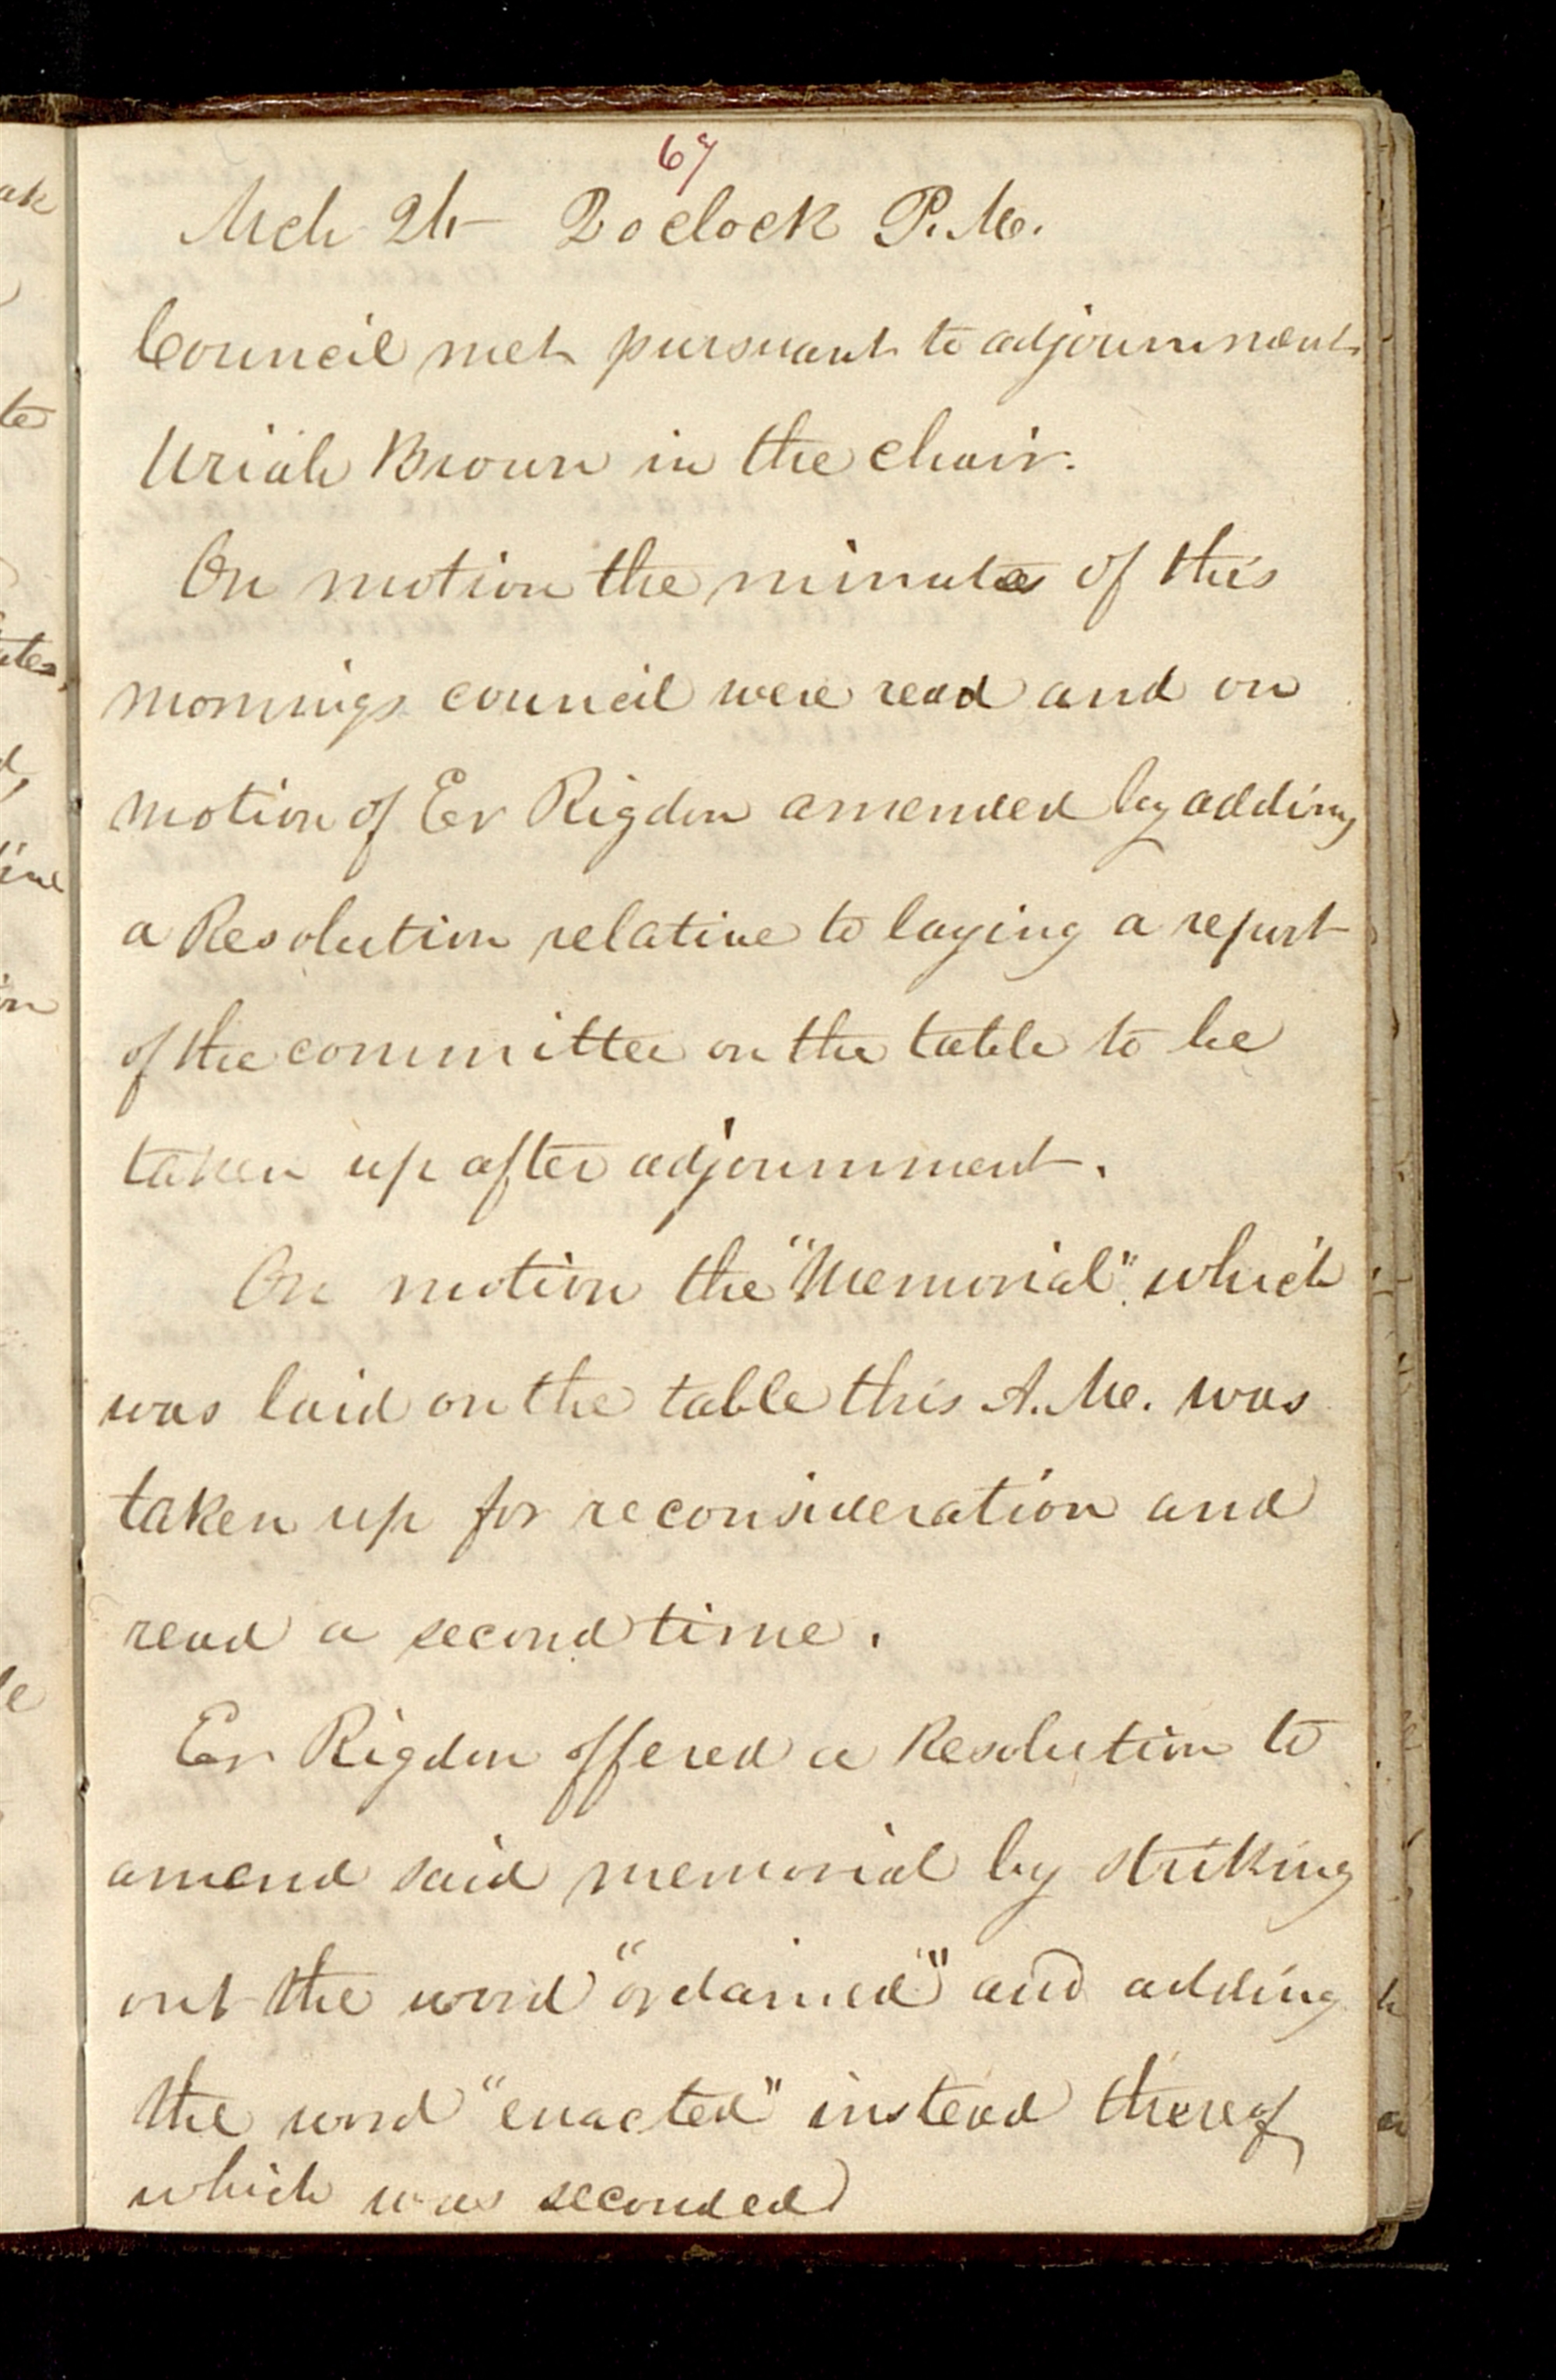 67
Mch 21— 2 oclock P.M.
Council met pursuant to adjournment
Uriah Brown in the chair.
On motion the minutes of this
mornings council were read and on
motion of Er Rigdon amended by adding
a Resolution relative to laying a report
of the committee on the table to be
taken up after adjournment.
On motion the "Memorial" which
was laid on the table this A.M. was
taken up for reconsideration and
read a second time.
Er Rigdon offered a Resolution to
amend said memorial by striking
out the word "ordained" and adding
the word "enacted" instead thereof
which was seconded